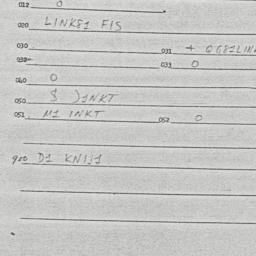 012 0
020 LINK81 FIS
030 031 + OG81LINK
032 033 0
040 0
050 $ )1NKT
051 M1 INKT 052 0
900 D1 KN1J1